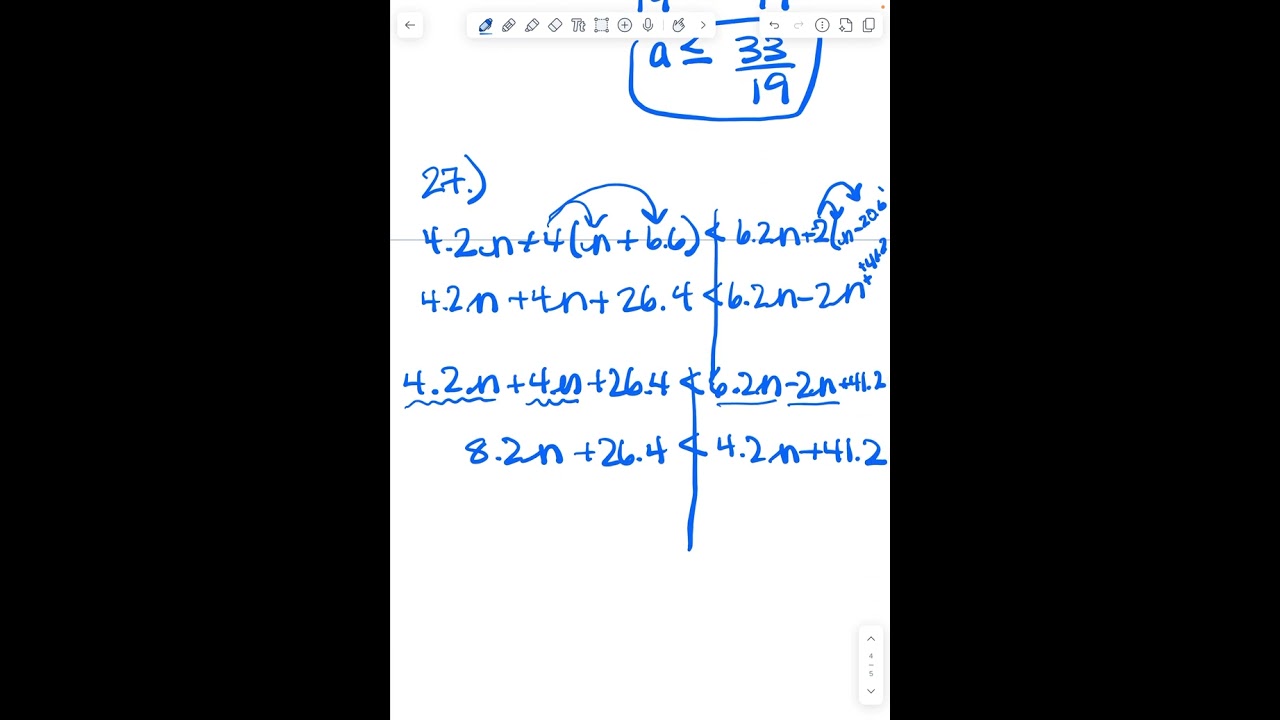 a ≤ 33/19
27.)
4.2n + 4(n + 6.6) < 6.2n + -2(n - 20.6
4.2n + 4n + 26.4 < 6.2n - 2n + 41.2
4.2n + 4n + 26.4 < 6.2n - 2n + 41.2
8.2n + 26.4 < 4.2n + 41.2
Tt
4
5